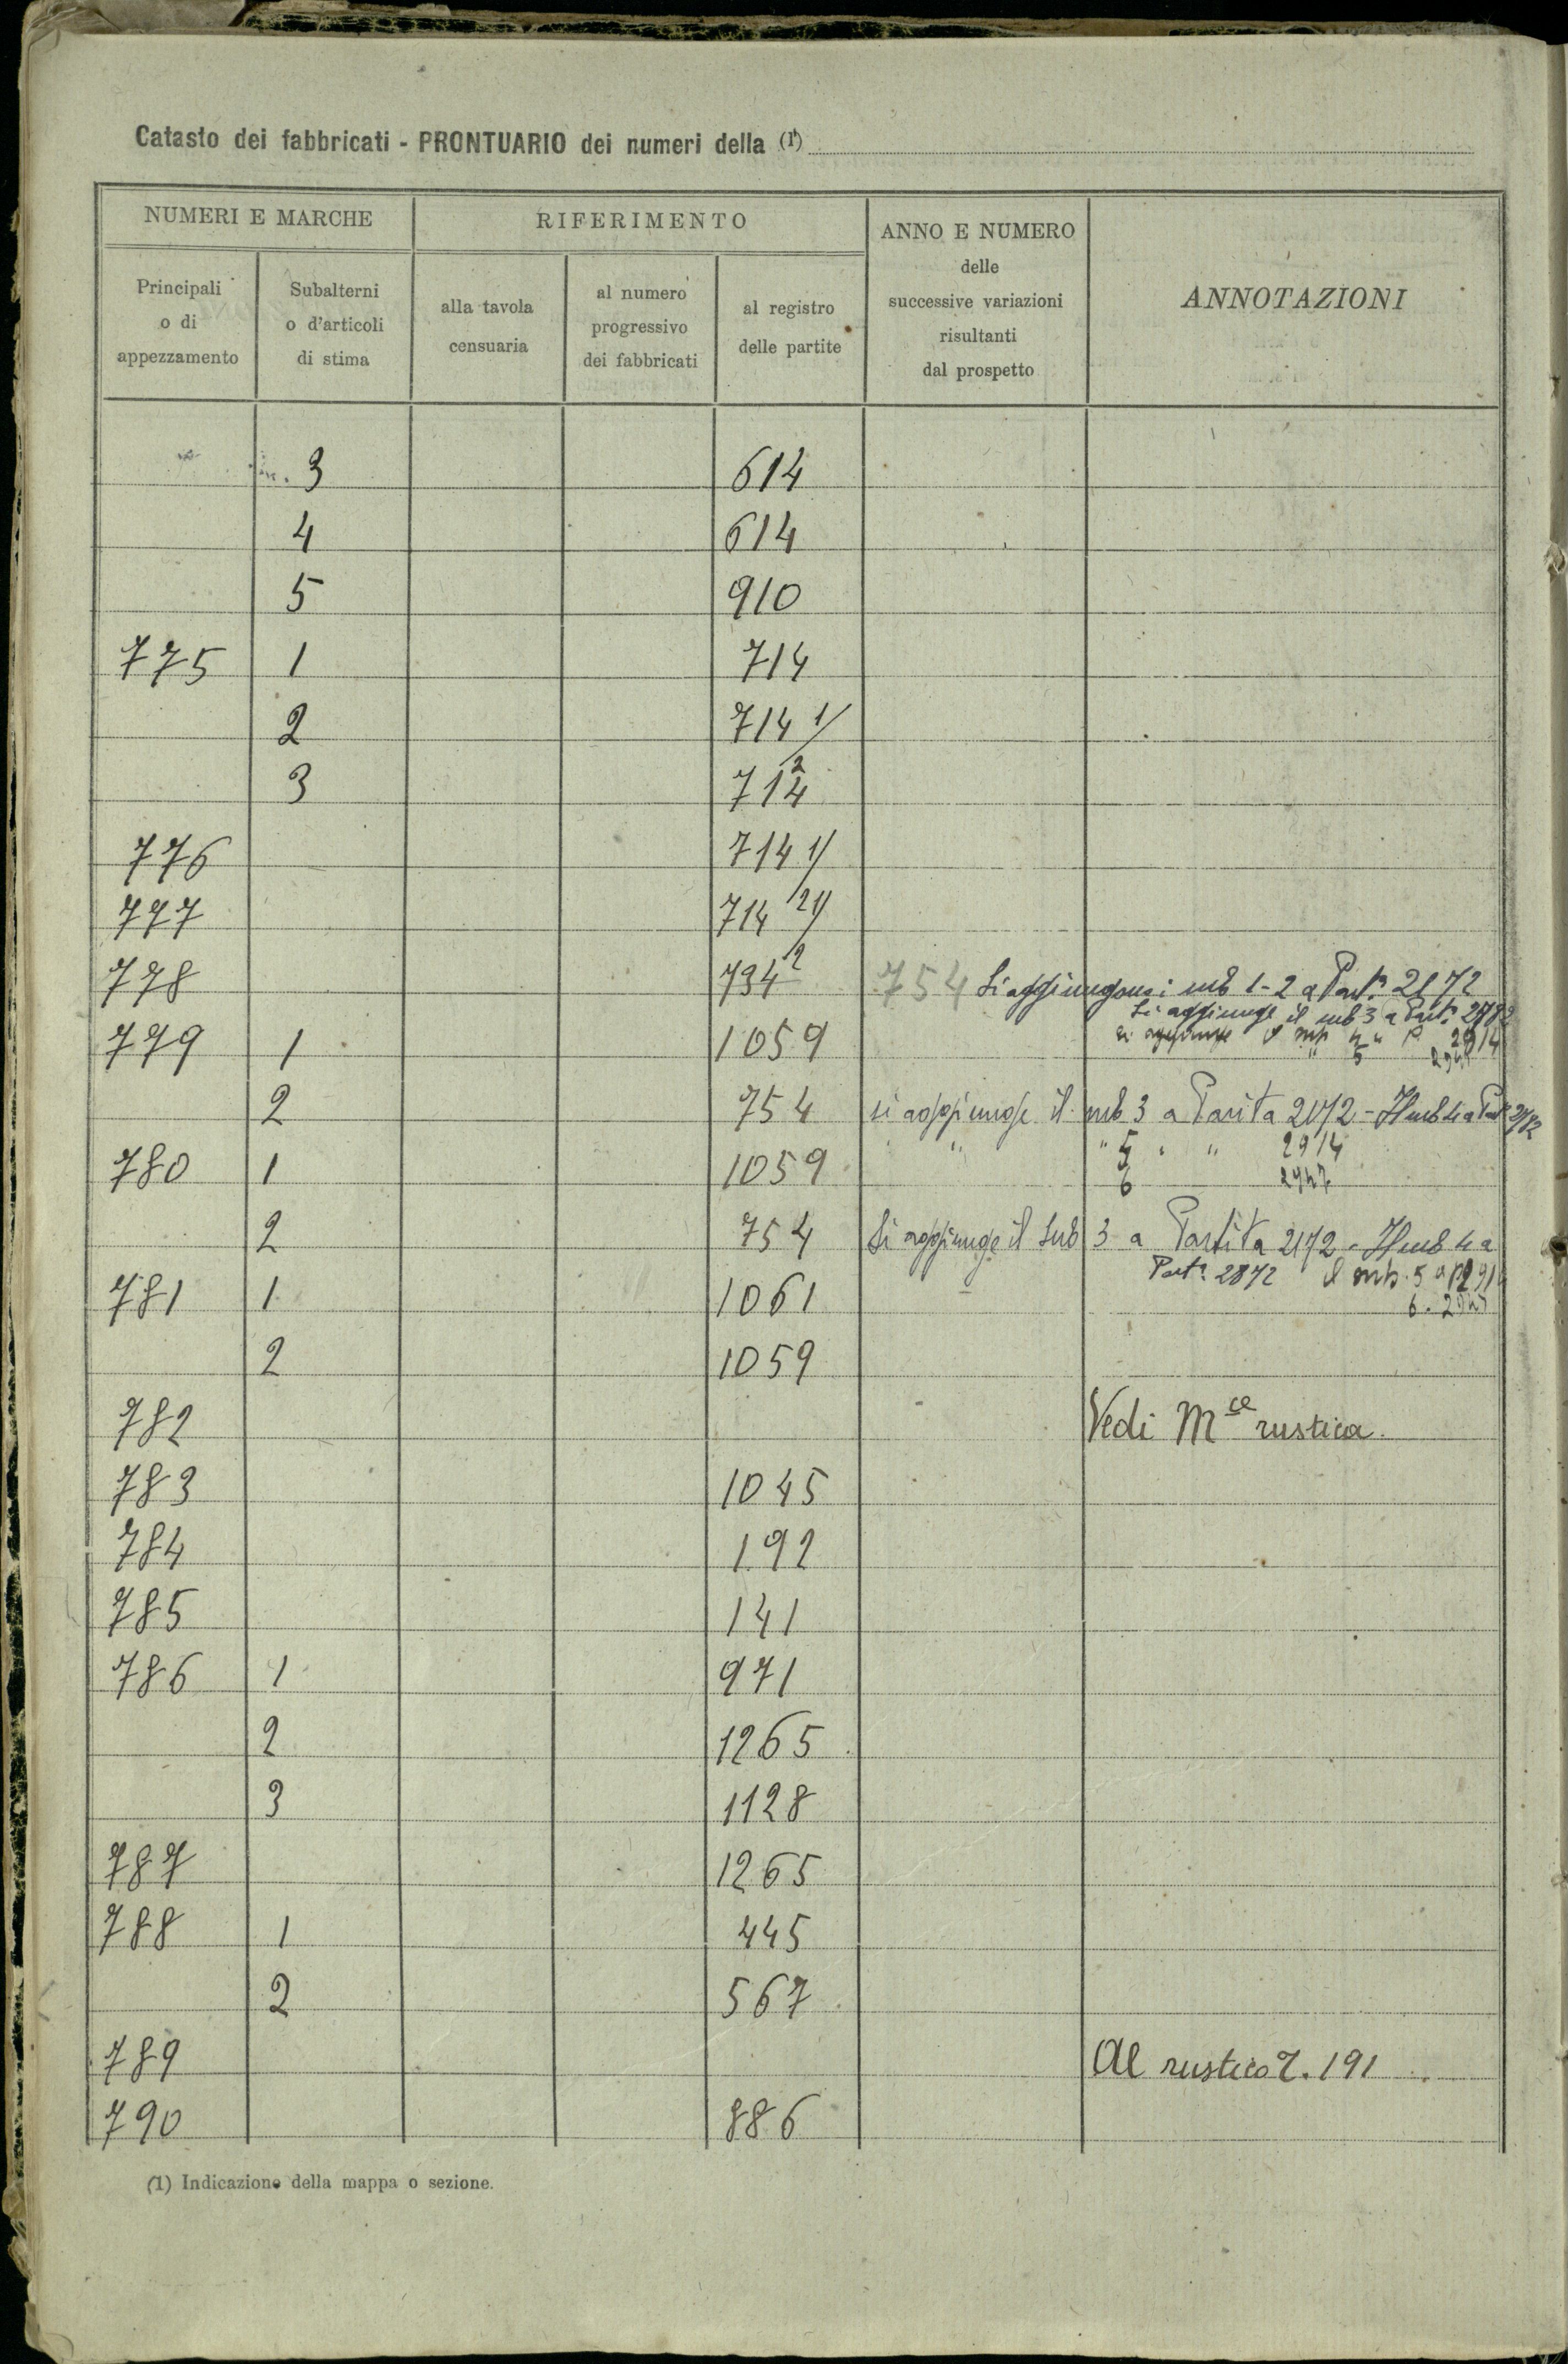 Catasto dei fabbricati - PRONTUARIO dei numeri della (1)
NUMERI E MARCHE
RIFERIMENTO
ANNO E NUMERO
delle
successive variazioni
risultanti
dal prospetto
ANNOTAZIONI
Principali
o di
appezzamento
Subalterni
o d'articoli
di stima
alla tavola
censuaria
al numero
progressivo
dei fabbricati
al registro
delle partite
3 614
4 614
5 910
775 1 714
2 714 1/
3 714 2
776 714 1/
777 714 21/
778 734 2 754 Si aggiungono i sub 1-2 a Part.a 2172
Si aggiunge il sub 3 a Part.a
779 1 1059 si aggiunge il sub 4 " P 2914
" 5
2 754 si aggiunge il sub 3 a Partita 2172 - Il sub 4 a Part
780 1 1059 " " 5 " " 2914
6 2947
2 754 Si aggiunge il sub 3 a Partita 2172 - Il sub 4 a
Part.a 2872 il sub. 5 a
781 1 1061 6.
2 1059
782 Vedi M.ce rustica.
783 1045
784 192
785 141
786 1 971
2 1265
3 1128
787 1265
788 1 445
2 567
789 Al rustico 7. 191
790 886
(1) Indicazione della mappa o sezione.